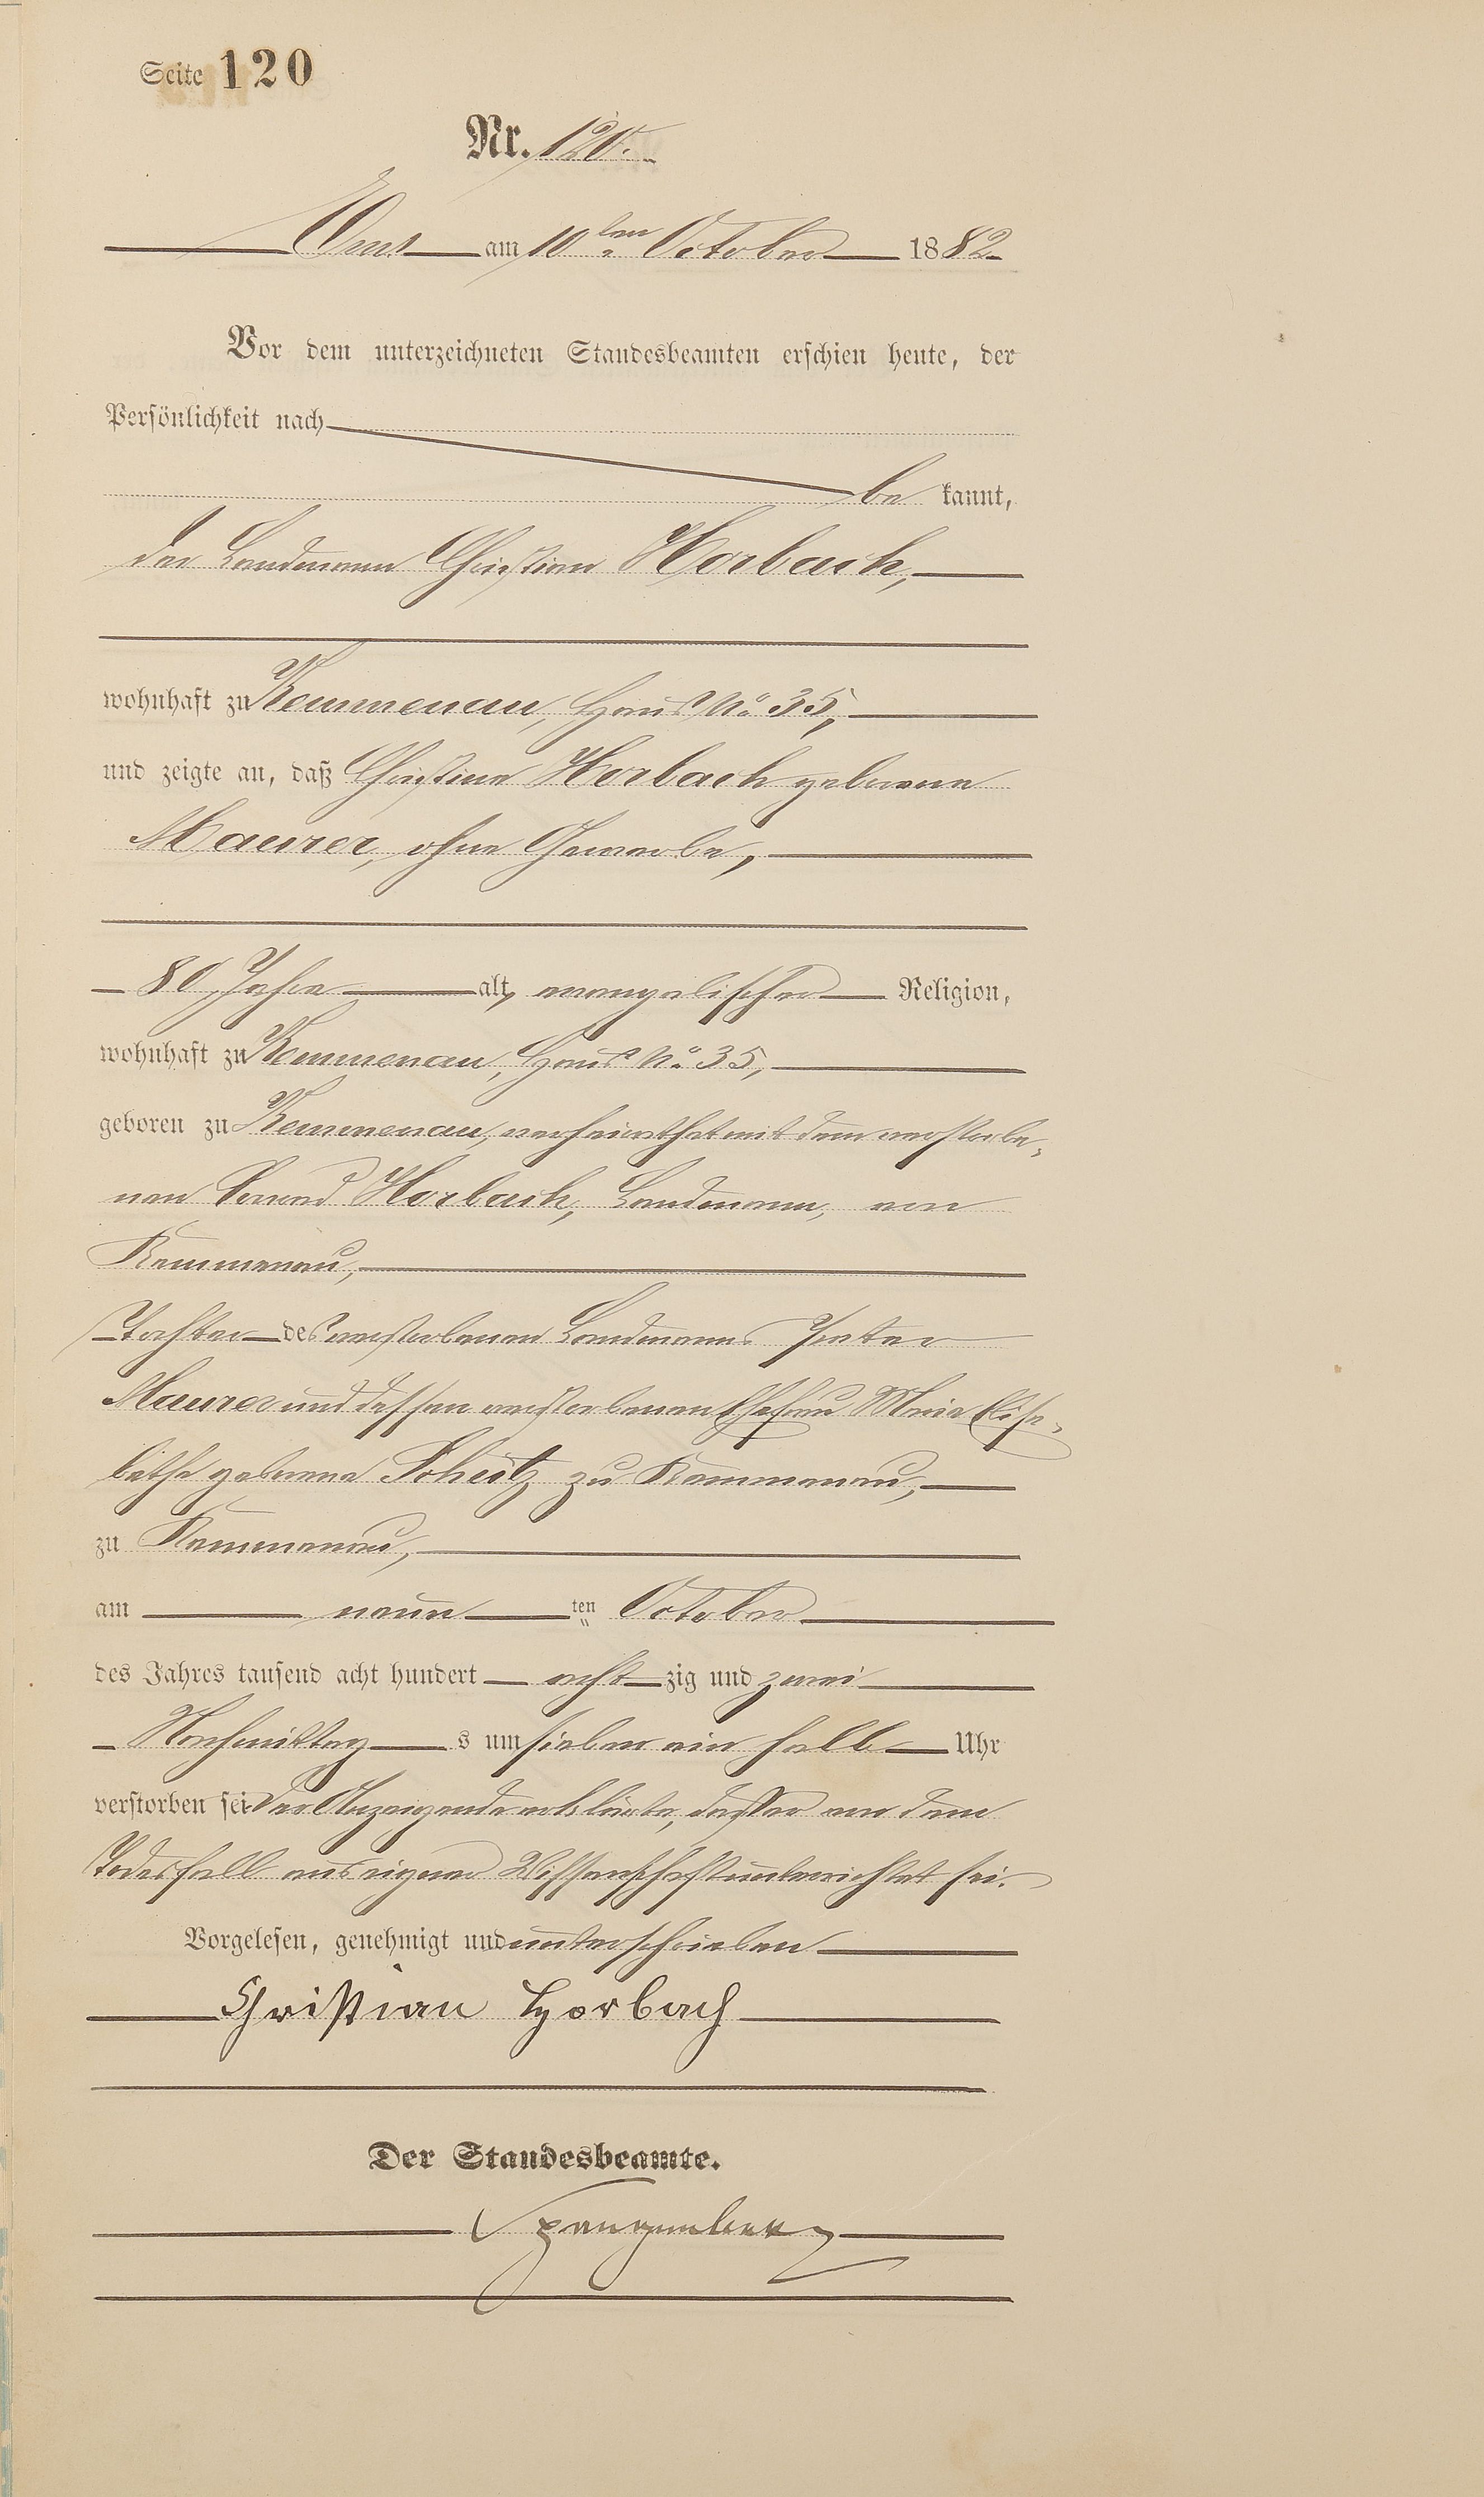 Seite 120
Nr. 120.
Ems am 10ten October 1882.
Vor dem unterzeichneten Standesbeamten erschien heute, der
Persönlichkeit nach
be kannt,
der Landmann Christian Horbach,
wohnhaft zu Kemmenau, Haus No 35,
und zeigte an, daß Christine Horbach geborene
Maurer, ohne Gewerbe,
80 Jahre alt, evangelischer Religion,
wohnhaft zu Kemmenau, Haus No 35,
geboren zu Kemmenau, verheirathet mit dem verstorbe-
nen Horbach, Landmann, von
Kemmenau,
Tochter des verstorbenen Landmanns Peter
Maurer und dessen verstorbenen Ehefrau Maria Elisa-
betha geborene Schütz zu Kemmenau,
zu Kemmenau,
am neun ten October
des Jahres tausend acht hundert acht zig und zwei
Nachmittag s um sieben ein halb Uhr
verstorben sei Der Anzeigende erklärte, daß er von dem
Todesfall aus eigener Wissenschaft unterrichtet sei.
Vorgelesen, genehmigt und unterschrieben
Christian Horbach
Der Standesbeamte.
Spangenberg